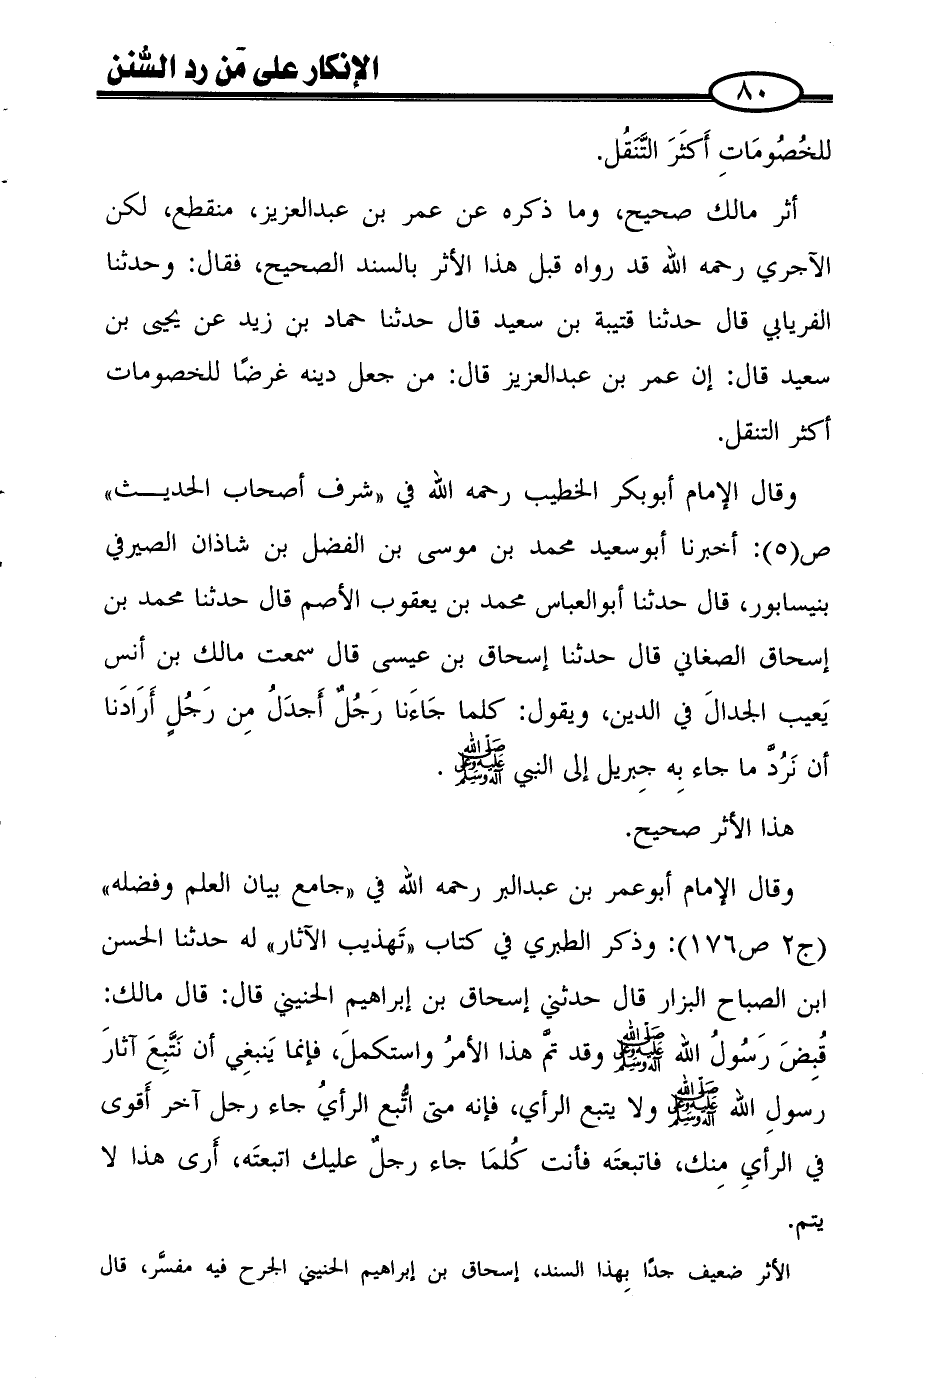 الإنكار على مَن رد السُّنن
٨٠
للخُصُومَاتِ أَكثَرَ التَّنَقُل.
أثر مالك صحيح، وما ذكره عن عمر بن عبدالعزيز، منقطع، لكن
الآجري رحمه الله قد رواه قبل هذا الأثر بالسند الصحيح، فقال: وحدثنا
الفريابي قال حدثنا قتيبة بن سعيد قال حدثنا حماد بن زيد عن يحيى بن
سعيد قال: إن عمر بن عبدالعزيز قال: من جعل دينه غرضًا للخصومات
أكثر التنقل.
وقال الإمام أبوبكر الخطيب رحمه الله في «شرف أصحاب الحديث»
ص(٥): أخبرنا أبوسعيد محمد بن موسى بن الفضل بن شاذان الصيرفي
بنيسابور، قال حدثنا أبوالعباس محمد بن يعقوب الأصم قال حدثنا محمد بن
إسحاق الصغاني قال حدثنا إسحاق بن عيسى قال سمعت مالك بن أنس
يَعيب الجدالَ في الدين، ويقول: كلما جَاءَنا رَجُلٌ أَجدَلُ مِن رَجُلٍ أَرَادَنا
أن نَرُدَّ ما جاء بِه جِبريل إلى النبي ﷺ.
هذا الأثر صحيح.
وقال الإمام أبوعمر بن عبدالبر رحمه الله في «جامع بيان العلم وفضله»
(ج٢ ص١٧٦): وذكر الطبري في كتاب «تَهذيب الآثار» له حدثنا الحسن
ابن الصباح البزار قال حدثني إسحاق بن إبراهيم الحنيني قال: قال مالك:
قُبِضَ رَسُولُ الله ﷺ وقد تمَّ هذا الأمرُ واستكملَ، فإنما يَنبغي أن نَتَّبِعَ آثارَ
رسولِ الله ﷺ ولا يتبع الرأي، فإنه متى اتُّبع الرأيُ جاء رجل آخر أَقوى
في الرأيِ مِنك، فاتبعتَه فأنت كُلمَا جاء رجلٌ عليك اتبعتَه، أَرى هذا لا
يتم.
الأثر ضعيف جدًا بِهذا السند، إسحاق بن إبراهيم الحنيني الجرح فيه مفسَّر، قال